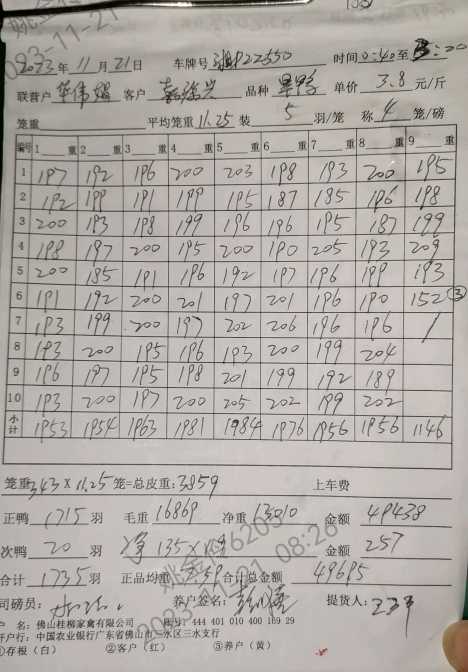 2023年 11月 21日 车牌号 湘P22550 时间 0:40 至
联营户 客户 品种 单价 3.8 元/斤
笼重 平均笼重 11.25 装 5 羽/笼 称 4 笼/磅
编号 1 重 2 重 3 重 4 重 5 重 6 重 7 重 8 重 9 重
1 197 192 196 200 203 198 193 200 195
2 192 199 191 199 195 187 185 196 198
3 200 193 198 199 196 196 195 187 199
4 198 197 200 195 200 190 205 193 209
5 200 185 191 196 192 197 196 199 193
6 191 192 200 201 197 201 196 190 152 ③
7 193 199 200 197 202 206 196 196 /
8 193 200 195 196 193 200 199 204
9 196 197 195 198 201 199 192 189
10 193 200 197 200 205 202 199 202
小计 1953 1954 1963 1981 1984 1976 1956 1956 1146
笼重 343 × 11.25 笼=总皮重: 3859 上车费
正鸭 1715 羽 毛重 16869 净重 13010 金额 49438
次鸭 20 羽 净 135×1.9 金额 257
合计 1735 羽 正品均重 合计总金额 49695
司磅员: 养户签名: 提货人:
户 名: 佛山桂柳家禽有限公司 账号: 444 401 010 400 169 29
开户行: 中国农业银行广东省佛山市三水区三水支行
①存根(白) ②客户(红) ③养户(黄)
2023-11-21 08:26